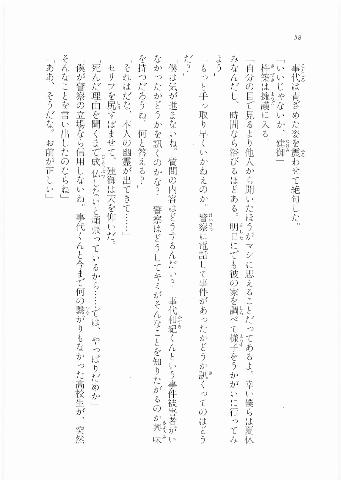 58
事代は青ざめた姿を震わせて絶句した。
「いいじゃないか、建御」
杵築は擁護に入る。
「自分の目で見るより他人から聞いたほうがマシに思えることだってあるよ。幸い僕らは夏休
みなんだし、時間なら浴びるほどある。明日にでも彼の家を調べて様子をうかがいに行ってみ
よう」
「もっと手っ取り早くいかねえのか。警察に電話して事件があったかどうか訊くってのはどう
だ？」
「僕は気が進まないね。質問の内容はどうするんだい？　事代和紀くんという事件被害者がい
なかったかどうかを訊くのかな？　警察はどうしてキミがそんなことを知りたがるのか興味
を持つだろうね。何と答える？」
「それはだな、本人の幽霊が出てきて……」
セリフを尻すぼませて、建御は天を仰いだ。
「死んだ理由を聞くまで成仏しないと頑張っているから……では、やっぱりだめか」
「僕が警察の立場なら信用しないね。事代くんと今まで何の繋がりもなかった高校生が、突然
そんなことを言い出したのならね」
「ああ、そうだな。お前が正しい」